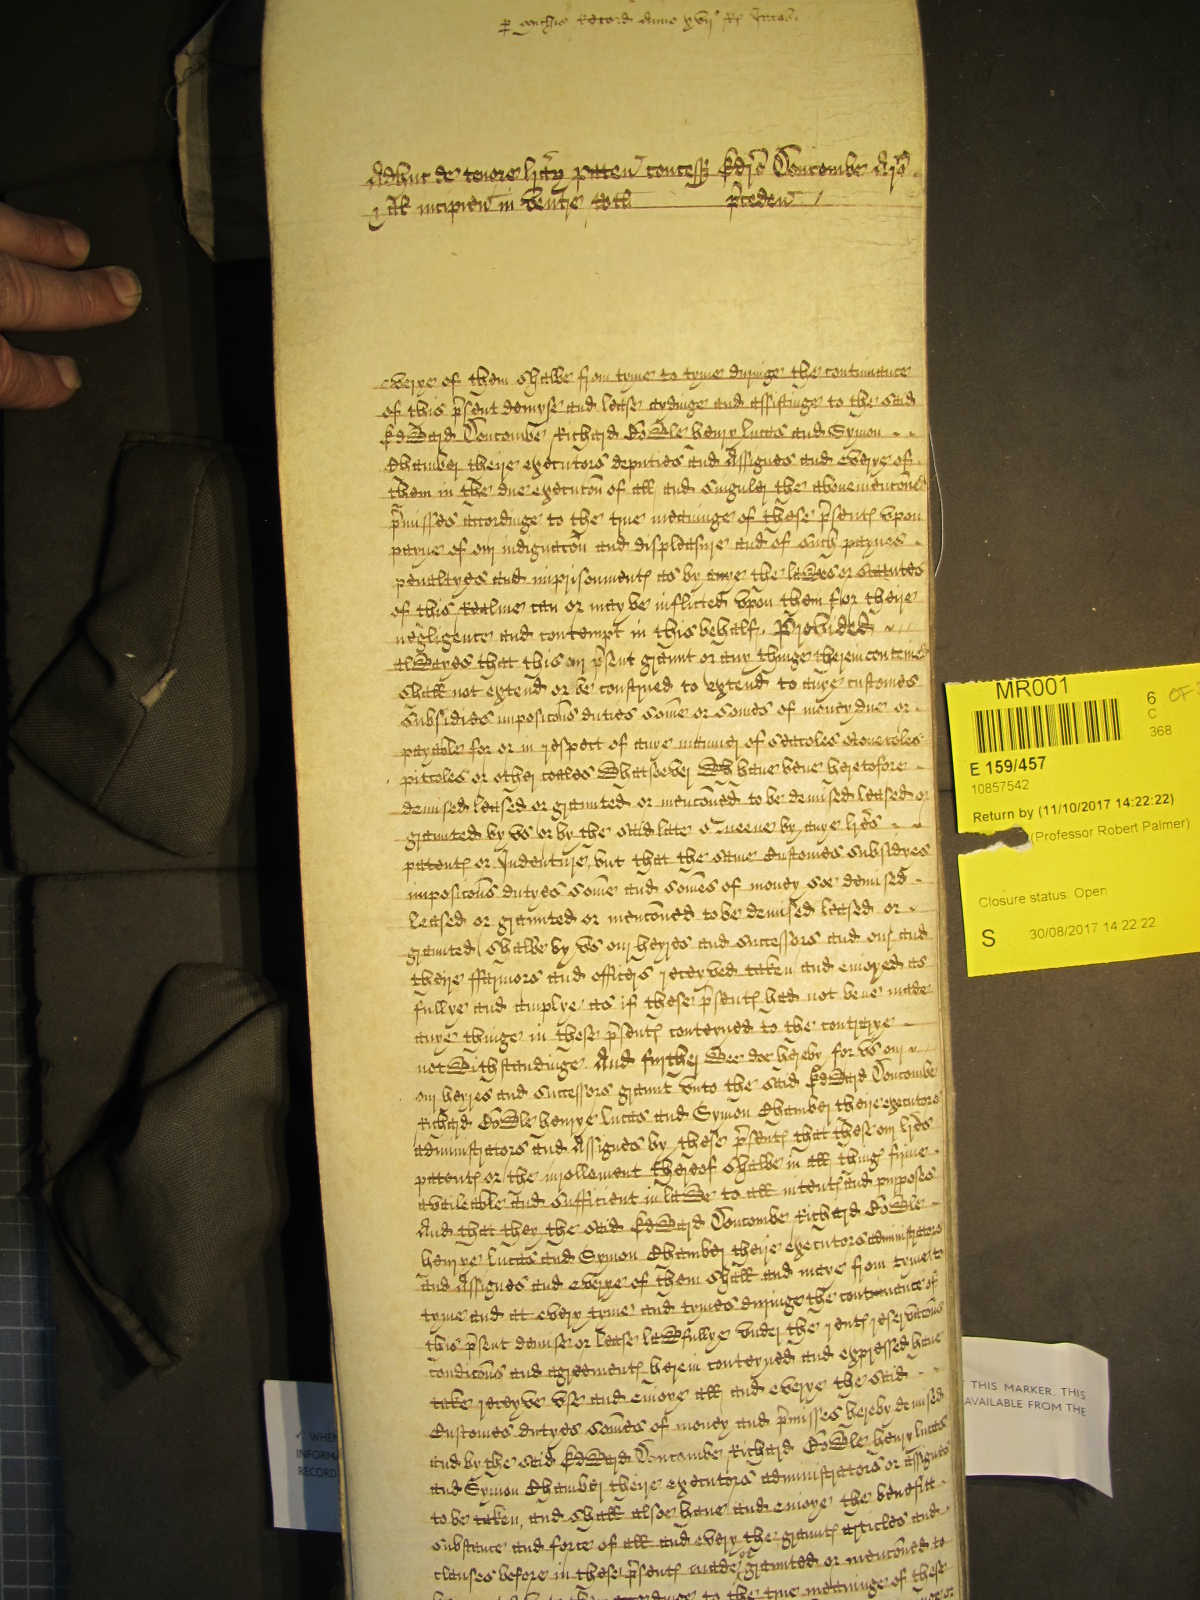 Adhuc de tenore lrar̃ paten concess Edr̃o Doncombe Ar̃o
⁊ Al incipien in ventre rotl p̃ceden
everye of them shalbe from tyme to tyme duringe the continuance
of this p̃sent demyse and lease aydinge and assistinge to the said
Edward Doncombe Richard Cowle Henry Lucas and Symon
Chamber theire executors deputies and Assignes and everye of
them in the due execuc̃on of all and singuler the abovemenc̃oned
p̃misses accordinge to the true meaninge of these p̃sents upon
payne of our indignac̃on and displeasure and of such paynes
penaltyes and imprisonments as by anye the lawes or statutes
of this Realme can or may be inflicted upon them for theire
negligence and contempt in this behalf. Provided
alwayes that this our p̃sent graunt or any thinge therein conteined
shall not extend or be construed to extend to anye customes
subsidies imposic̃ons duties some or somes of money due or
payable for or in respect of anye manner of seacoles stonecoles
pittcoles or other coales whatsoever wch have bene heretofore
demised leased or graunted or menc̃oned to be demised leased or
graunted by us or by the said late Queene by anye lr̃es
patents or Indenture, but that the same Customes subsidyes
imposic̃ons dutyes some and somes of money soe demised
leased or graunted or menc̃oned to be demised leased or
graunted shalbe by us our heyres and successors and our and
theire ffarmors and officers receyved taken and enioyed as
fullye and amplye as if these p̃sents had not bene made
anye thinge in these p̃sents conteyned to the contrarye
notwithstandinge. And further wee doe hereby for us our
our heyres and successors graunt unto the said Edward Doncombe
Richard Cowle Henrye Lucas and Symon Chamber theire executors
administrators and Assignes by these p̃sents that these our lr̃es
patents or the inrollement thereof shalbe in all things firme
availeable and sufficient in lawe to all intents and purposes
And that they the said Edward Doncombe Richard Cowle
Henrye Lucas and Symon Chamber theire executors administrators
and Assignes and everye of them shall and maye from tyme to
tyme and at every tyme and tymes duringe the continuance of
this p̃sent demise or lease lawfullye under the rents reservac̃ons
condic̃ons and agreements herein conteyned and expressed have
take receyve use and enioye all and everye the said
Customes dutyes somes of money and p̃misses hereby demised
and by the said Edward Doncombe Richard Cowle Henry Lucas
and Symon Chamber theire executors administrators or assignes
to be taken, and shall alsoe have and enioye the benefitt
substance and force of all and every the graunts articles and
clauses before in these p̃sents made or graunted or menc̃oned to
accordinge to the true meaninge of these
MR001
6 OF
C
368
E 159/457
10857542
Return by (11/10/2017 14:22:22)
(Professor Robert Palmer)
Closure status: Open
S
30/08/2017 14:22:22
THIS MARKER. THIS
AVAILABLE FROM THE
✓ WHEN
INFORMA
RECORD